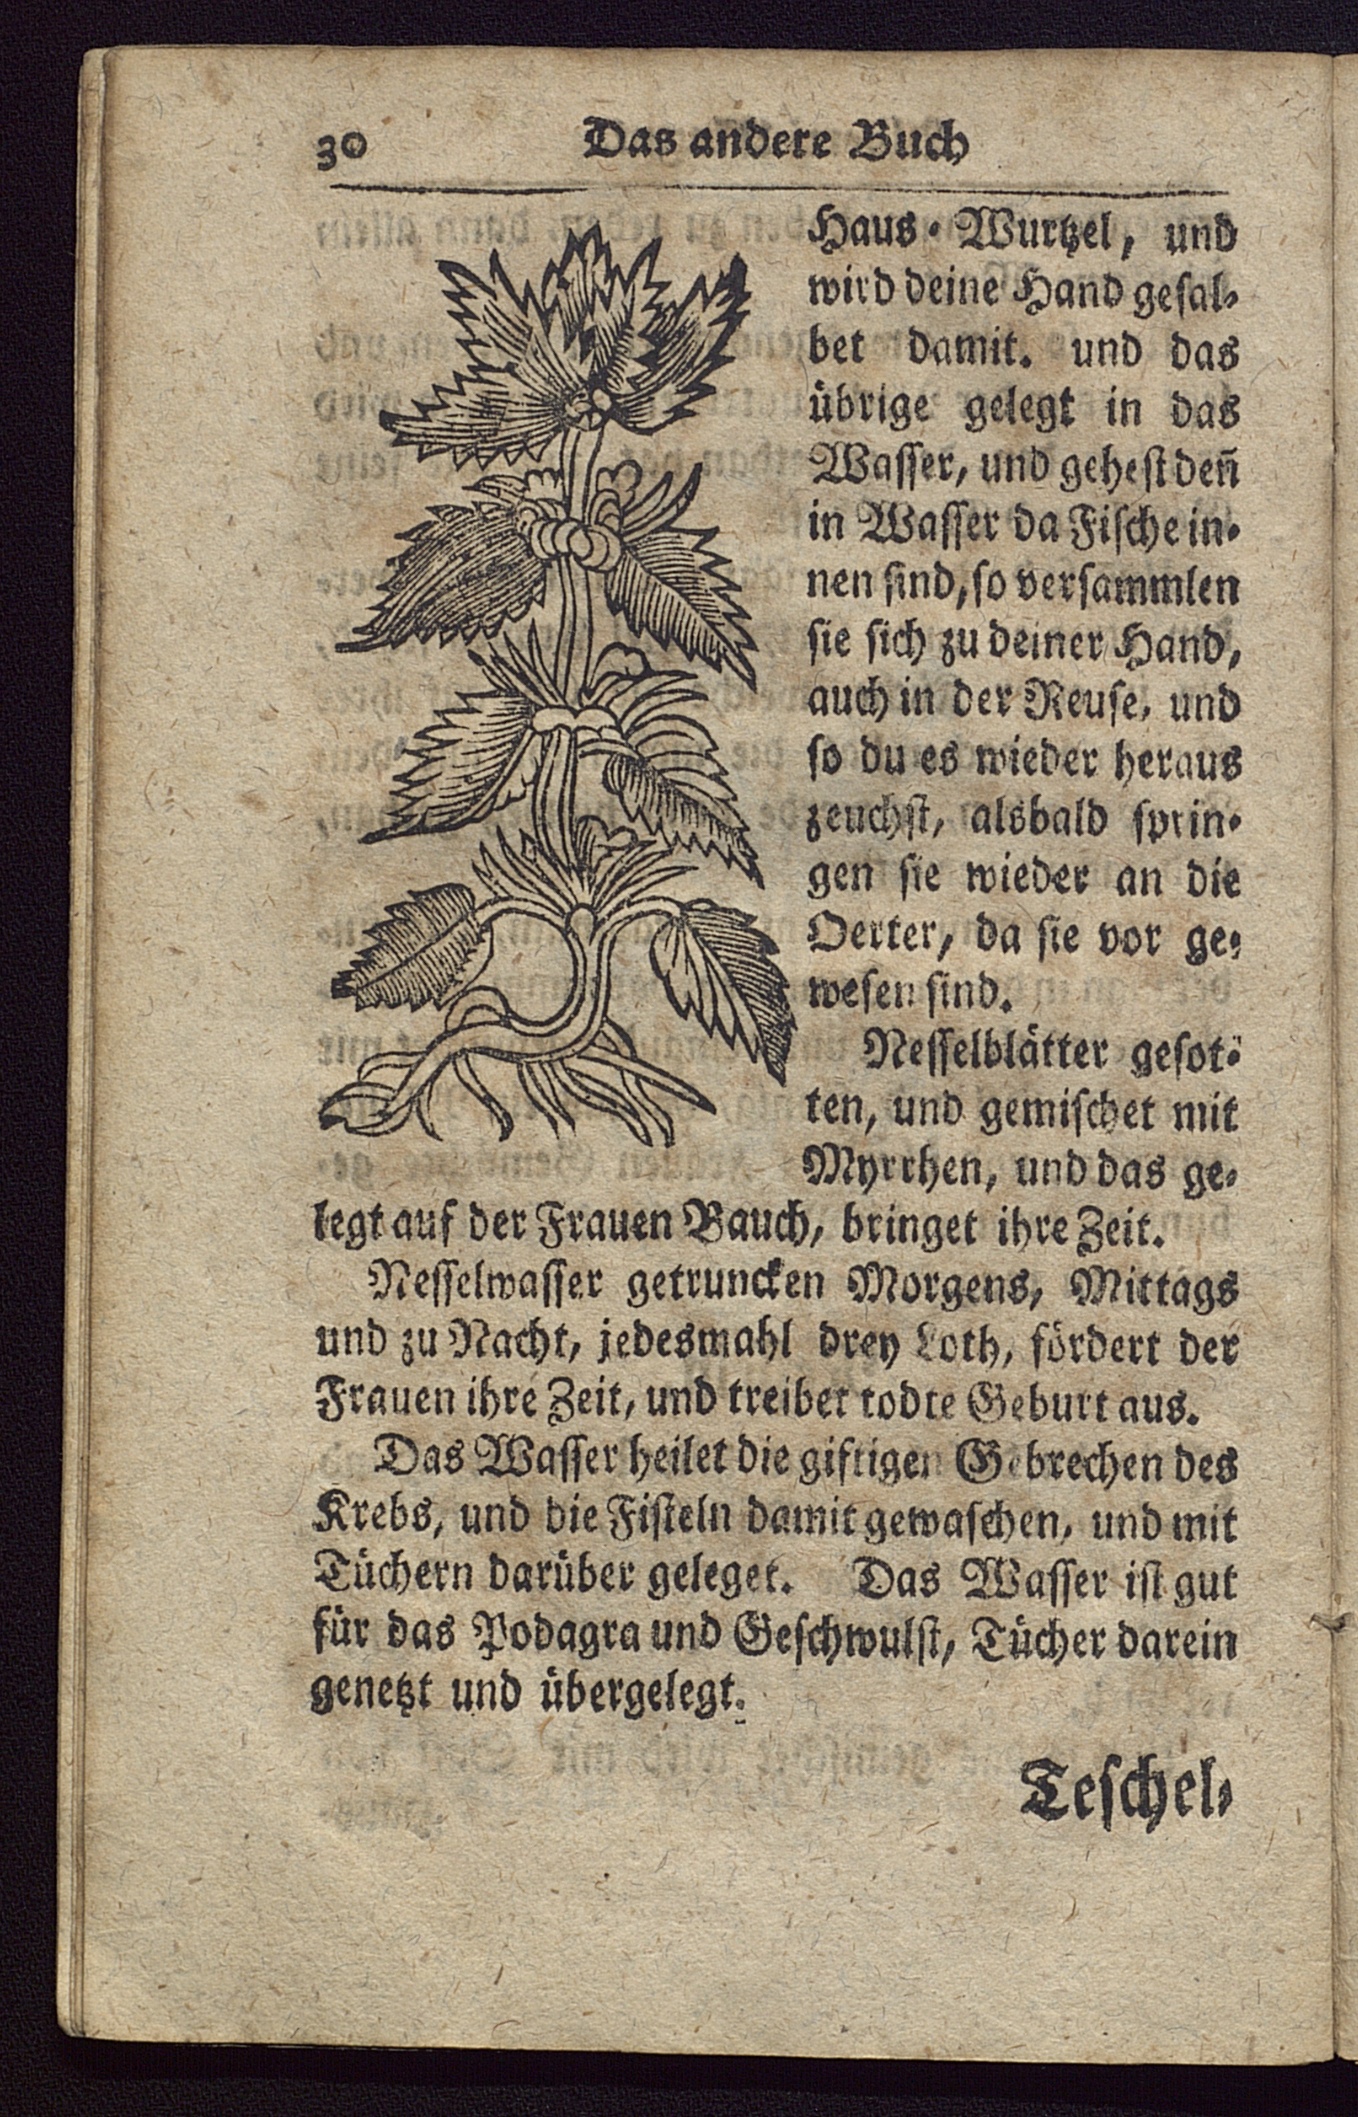 30 Das andere Buch
Haus-Wurtzel, und
wird deine Hand gesal-
bet damit. und das
übrige gelegt in das
Wasser, und gehest deñ
in Wasser da Fische in-
nen sind, so versammlen
sie sich zu deiner Hand,
auch in der Reuse, und
so du es wieder heraus
zeuchst, alsbald sprin-
gen sie wieder an die
Oerter, da sie vor ge-
wesen sind.
Nesselblätter gesot-
ten, und gemischet mit
Myrrhen, und das ge-
legt auf der Frauen Bauch, bringet ihre Zeit.
Nesselwasser getruncken Morgens, Mittags
und zu Nacht, jedesmahl drey Loth, fördert der
Frauen ihre Zeit, und treibet todte Geburt aus.
Das Wasser heilet die giftigen Gebrechen des
Krebs, und die Fisteln damit gewaschen, und mit
Tüchern darüber geleget. Das Wasser ist gut
für das Podagra und Geschwulst, Tücher darein
genetzt und übergelegt.
Teschel-